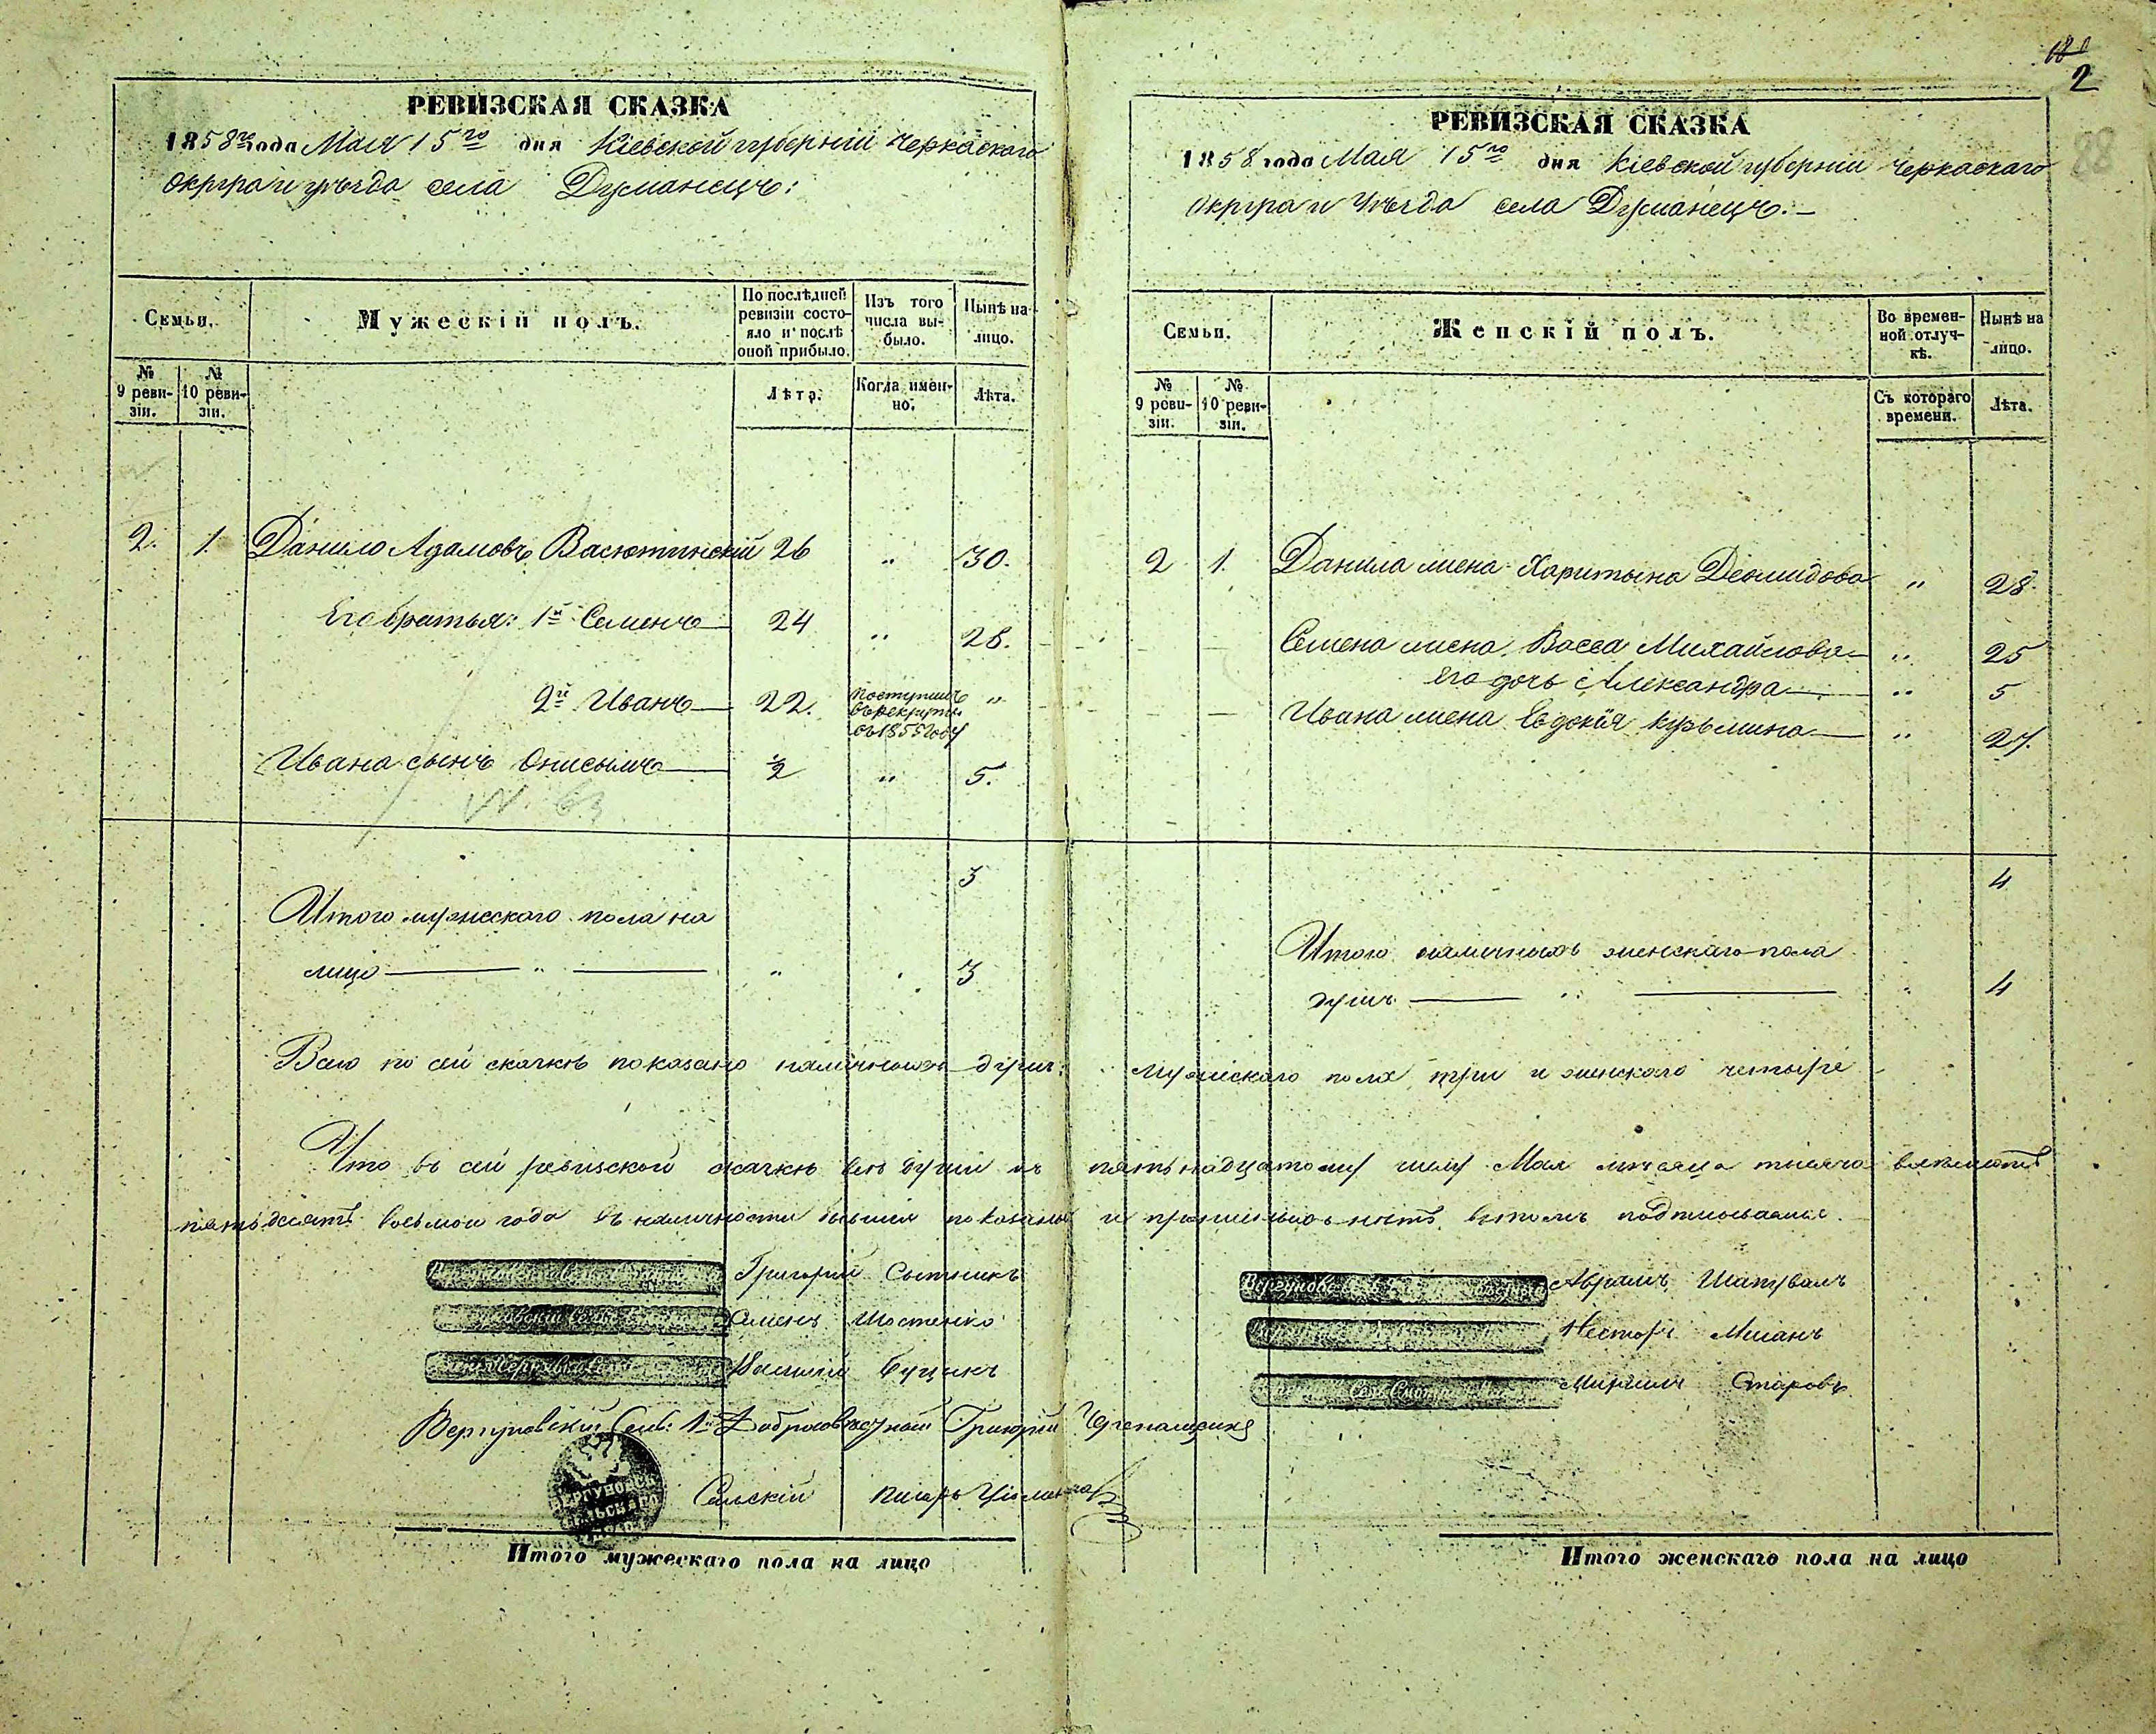 180
2
88
РЕВИЗСКАЯ СКАЗКА
1858го года Мая 15го дня Кіевской губерніи Черкаскаго
Округа и уѣзда села Думанецъ:
Семьи. Мужескій полъ. По послѣдней ревизіи состояло и послѣ оной прибыло. Изъ того числа выбыло. Нынѣ на лицо.
№ 9 ревизіи. № 10 ревизіи. Лѣта. Когда именно. Лѣта.
2. 1. Данило Адамовъ Васютинскій 26 „ 30.
Его братья: 1й Семенъ 24 „ 28.
2й Иванъ 22. поступилъ въ рекруты въ 1855 году „
Ивана сынъ Онисимъ ½ „ 5.
N. 63
3
Итого мужескаго пола на
лицо „ „ 3
РЕВИЗСКАЯ СКАЗКА
1858 года Мая 15го дня Кіевской губерніи Черкаскаго
Округа и Уѣзда села Думанецъ.
Семьи. Женскій полъ. Во временной отлучкѣ. Нынѣ на лицо.
№ 9 ревизіи. № 10 ревизіи. Съ котораго времени. Лѣта.
2 1. Данила жена Харитына Деомидова „ 28.
Семена жена Васса Михайлова „ 25
Его дочь Александра „ 5
Ивана жена Евдокія Кузьмина „ 27.
4
Итого наличныхъ женскаго пола
душъ „ 4
Всего по сей сказкѣ показано наличныхъ душъ: мужескаго пола три и женскаго четыре
Что въ сей ревизской сказкѣ всѣ души къ пятьнадцатому числу Мая мѣсяца тысяча восемьсотъ
пятьдесятъ восьмого года въ наличности бывшія показаны и прописныхъ нѣтъ, въ томъ подписываемся.
Григорій Сытникъ
Семенъ Шостенко
Василій Буцыкъ
Аврамъ Шаповалъ
Несторъ Мисанъ
Старовъ
Вергуновскій Сель: 1й Добросовѣстный Григорій
Сельскій писарь
Итого мужескаго пола на лицо
Итого женскаго пола на лицо